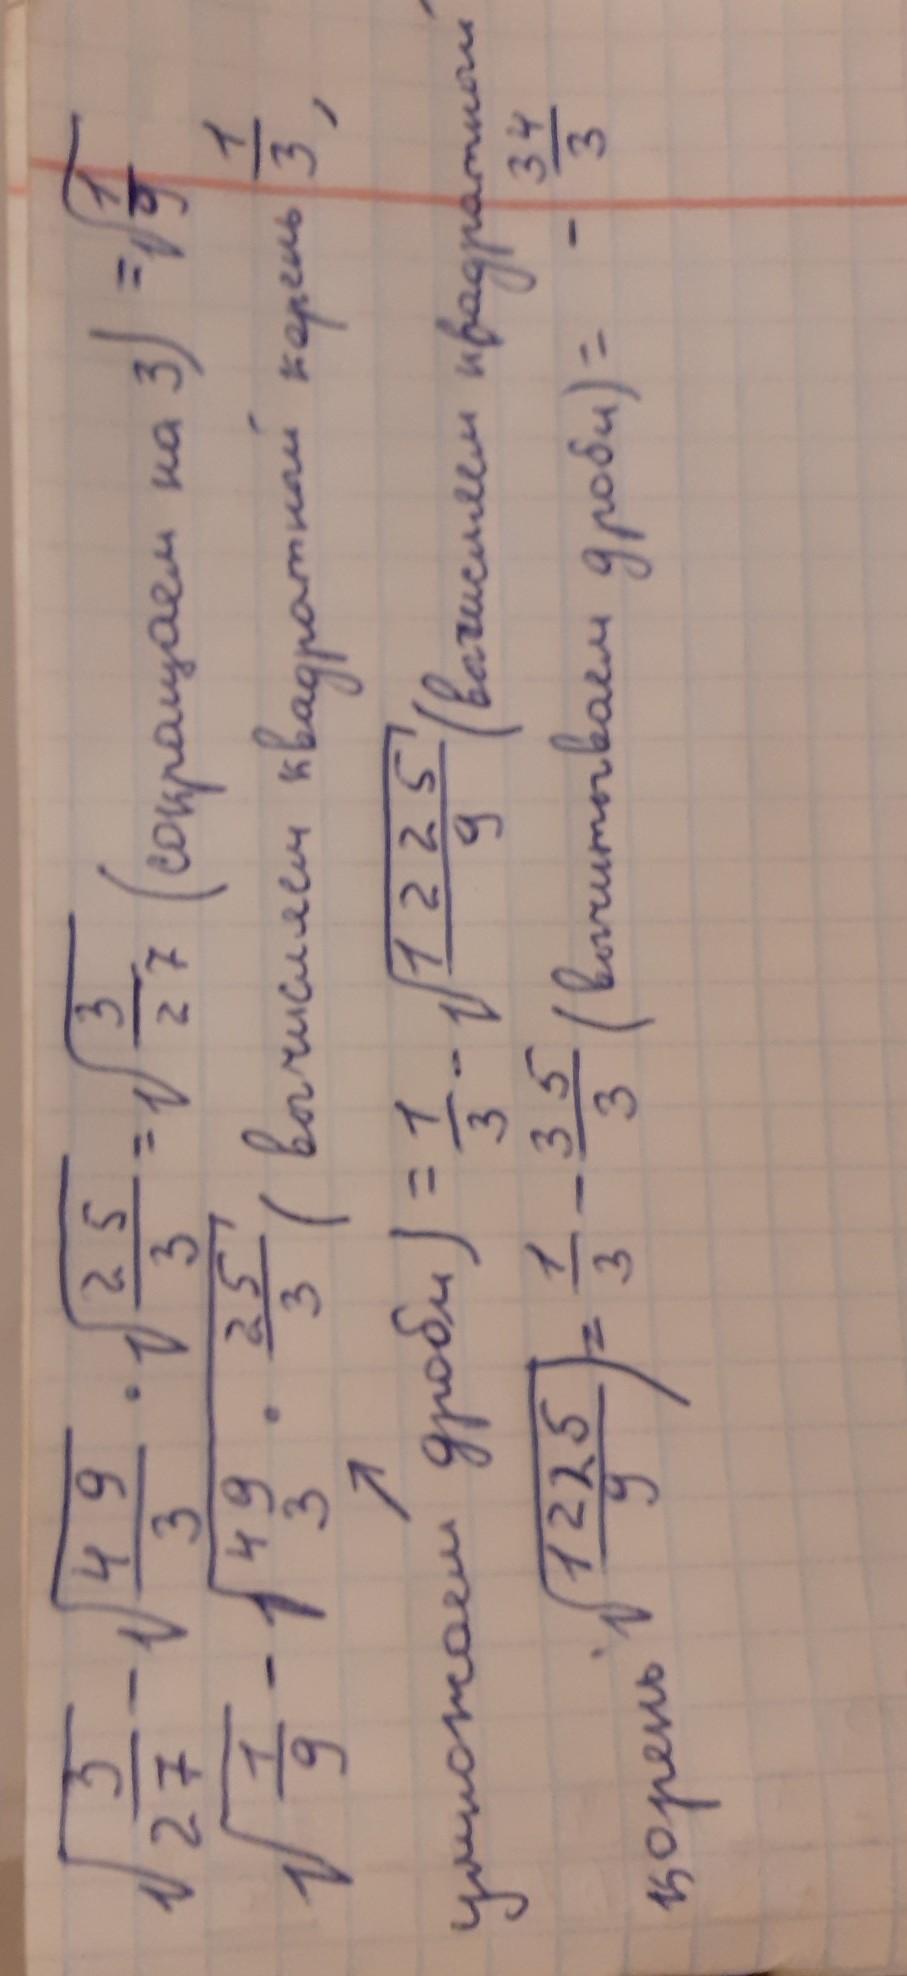 √3/27 − √49/3 · √25/3 = √3/27 (сокращаем на 3) = √1/9
√1/9 − √49/3 · 25/3 (вычисляем квадратной корень 1/3,
↗
умножаем дроби) = 1/3 − √1225/9 (вычисляем квадратный
корень √1225/9) = 1/3 − 35/3 (вычитываем дроби) = − 34/3